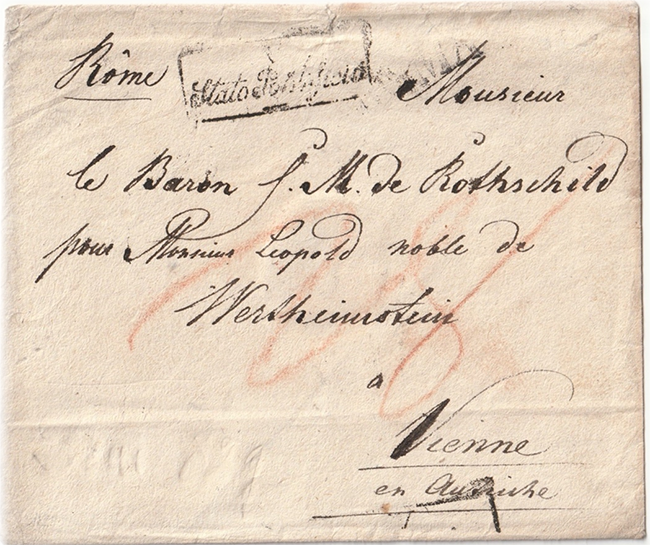 Rôme
Stato Pontificio
Monsieur
le Baron S. M. de Rothschild
pour Monsieur Leopold noble de
Wertheimstein
a
Vienne
en Autriche